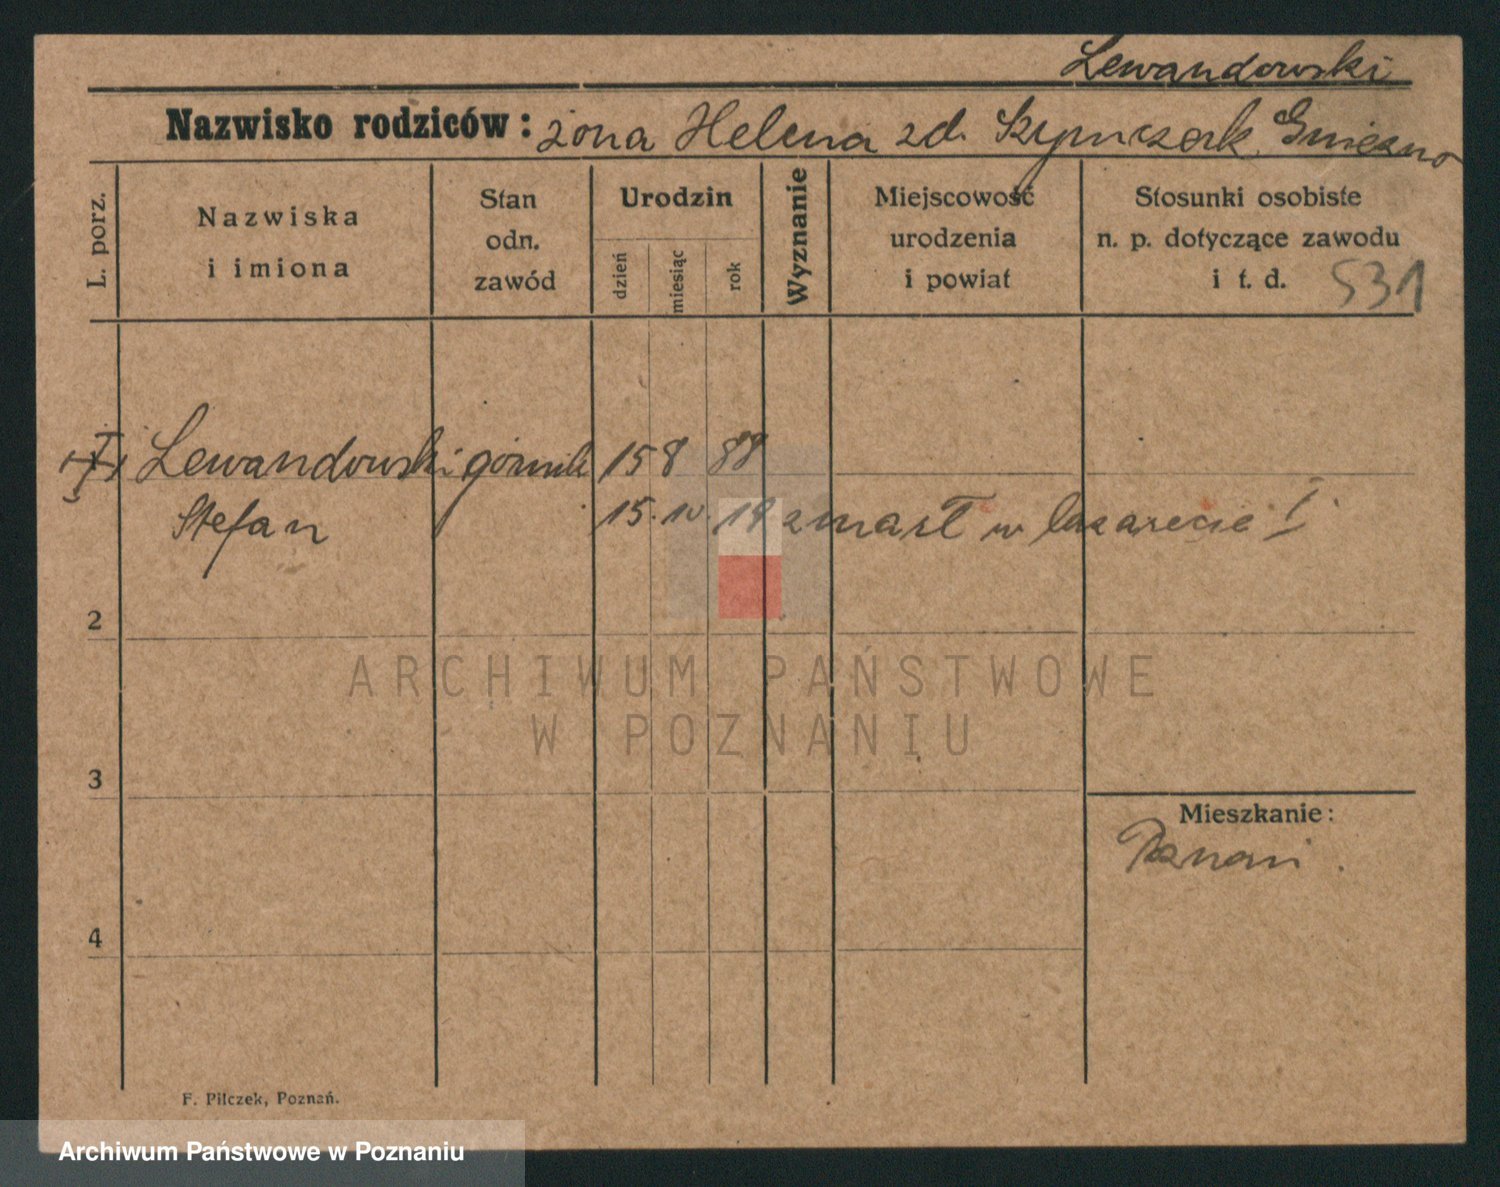 Lewandowski
Nazwisko rodziców: żona Helena zd. Szymczak, Gniezno
L. porz.
Nazwiska
i imiona
Stan
odn.
zawód
Urodzin
dzień
miesiąc
rok
Wyznanie
Miejscowość
urodzenia
i powiat
Stosunki osobiste
n. p. dotyczące zawodu
i t. d. 531
Lewandowski górnik 15 8 88
Stefan 15. 10. 19 zmarł w lazarecie I
2
ARCHIWUM PAŃSTWOWE
W POZNANIU
3
Mieszkanie:
Poznań.
4
F. Pilczek, Poznań.
Archiwum Państwowe w Poznaniu